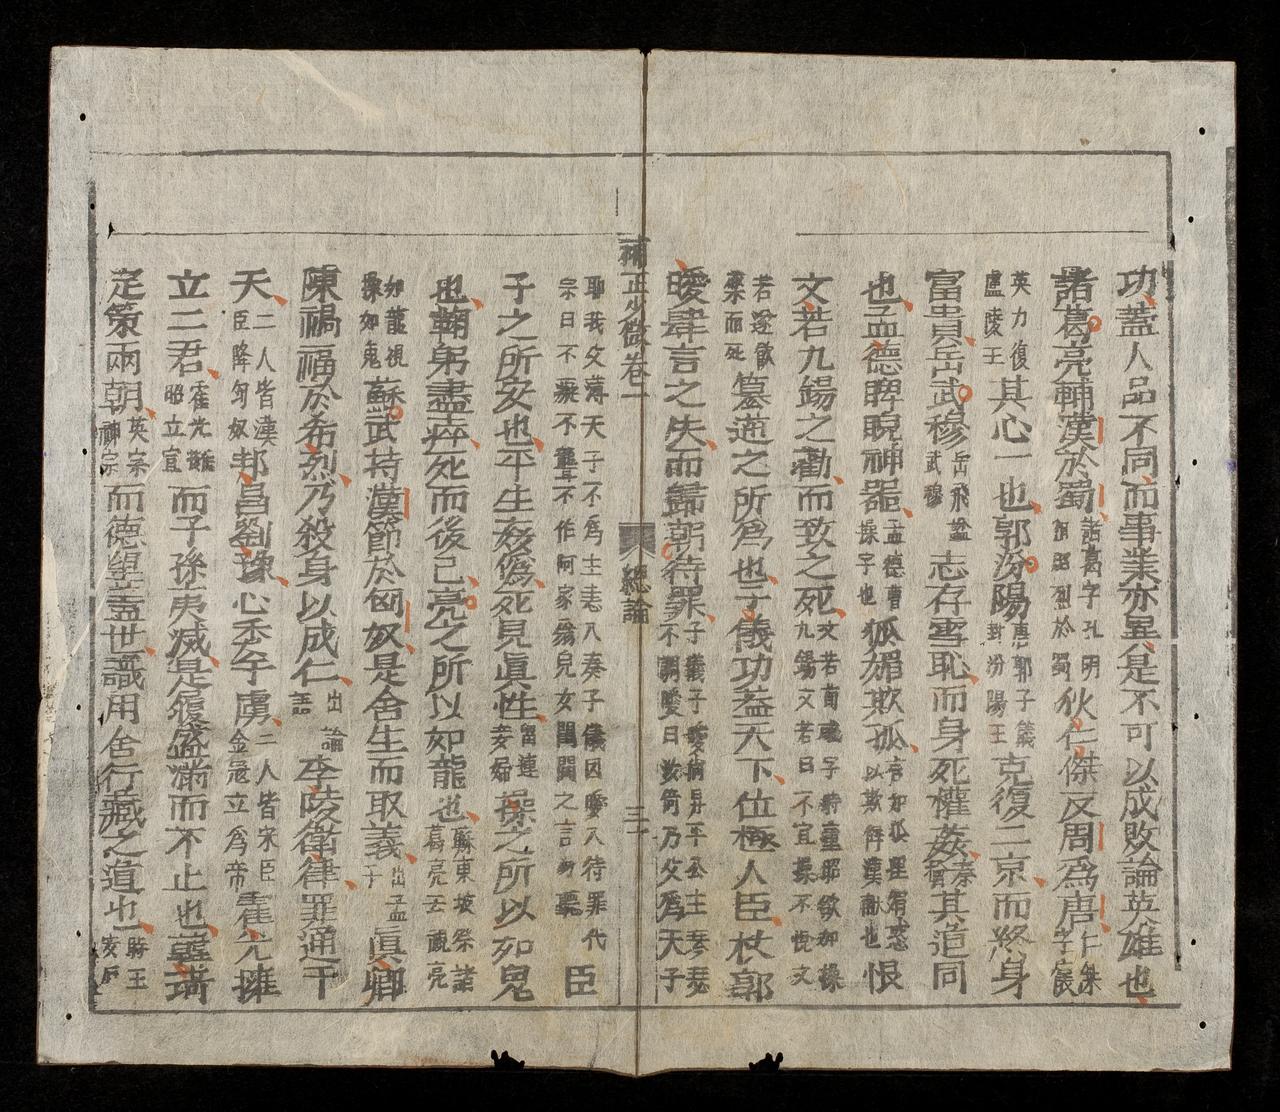 功蓋人品不同而事業亦異是不可以成敗論英雄也
諸葛亮輔漢於蜀諸葛字孔明相昭烈於蜀狄仁傑反周爲唐仁傑字懷
英力復盧陵王其心一也郭汾陽唐郭子儀封汾陽王克復二京而終身
富貴岳武穆岳飛謚武穆志存雪恥而身死權姦秦檜其道同
也孟德睥睨神器孟德曹操字也狐媚欺孤言如狐狸狷惑以欺獻漢也恨
文若九錫之勸而致之死文若荀彧字時董昭欲加操九錫文若曰不宜操不悅文
若遂飮藥而死篡逆之所爲也子儀功蓋天下位極人臣杖郭
曖肆言之失而歸朝待罪子儀子曖尙昇平公主琴瑟不調曖曰汝倚乃父爲天子
補正少微卷一 總論 三一
耶我父薄天子不爲主恚入奏子儀囚曖入待罪代宗曰不癡不聾不作阿家翁兒女閨閤之言勿聽臣
子之所安也平生姦僞死見眞性留連妾婦操之所以如鬼
也鞠躬盡瘁死而後已亮之所以如龍也蘇東坡祭諸葛亮云視亮
如龍視操如鬼蘇武持漢節於匈奴是舍生而取義出孟子眞卿
陳禍福於希烈乃殺身以成仁出論語李陵衛律罪通于
天二人皆漢臣降匈奴邦昌劉豫心悉午虜二人皆宋臣金冦立爲帝霍光擁
立二君霍光輔昭立宣而子孫夷滅是履盛滿而不止也韓琦
定策兩朝英宗神宗而德望蓋世識用舍行藏之道也時王